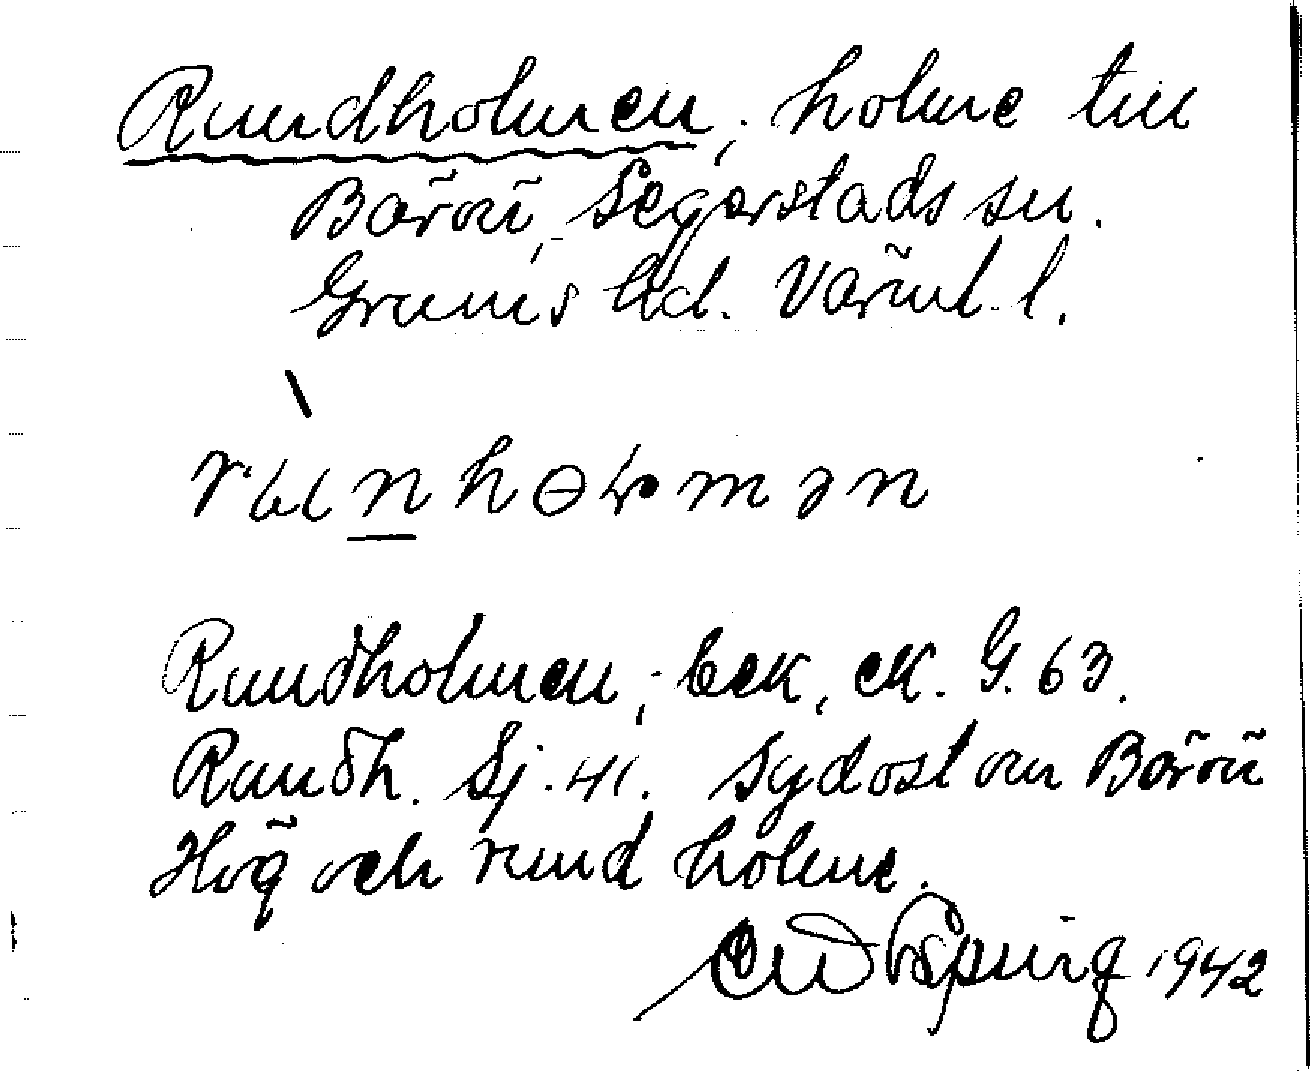 Rundholmen, holme till
Bärön, Segerstads sn.
Grums hd. Värml. l.
Rundholmen, bek, ek. G. 63.
Rundh. Sj. 41. Sydost om Bärön
Hög och rund holme.
1942